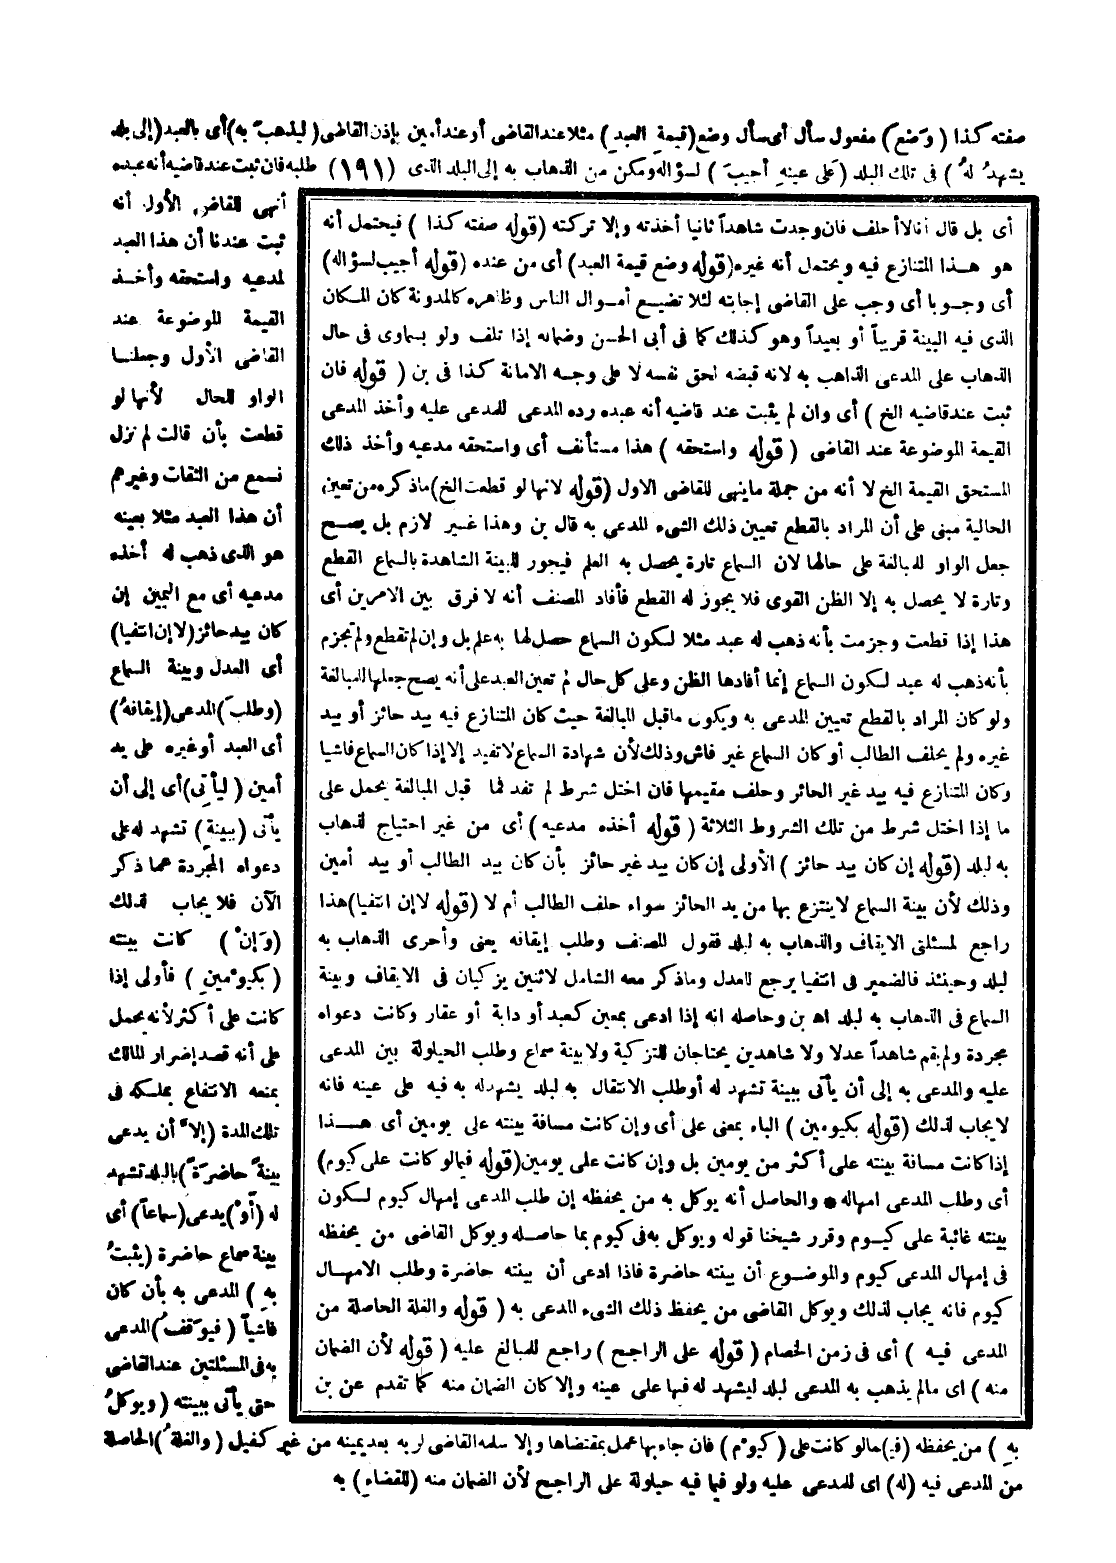 صفته كذا ( وَضْع ) مفعول سأل أى سأل وضع (قيمةِ العبدِ ) مثلا عند القاضى أو عند أمين بإذن القاضى ( ليذهبَ به) أى بالعبد (إلى بلد
يشهدُ لهُ ) فى تلك البلد (عَلى عينِهِ أجيبَ ) لسؤاله ومكن من الذهاب به إلى البلد الذى (١٩١) طلبه فان ثبت عند قاضيه أنه عبده
أنهى للقاضى الأول أنه
ثبت عندنا أن هذا العبد
لمدعيه واستحقه وأخذ
القيمة الموضوعة عند
القاضى الأول وجعلنا
الواو للحال لأنها لو
قطعت بأن قالت لم نزل
نسمع من الثقات وغيرهم
أن هذا العبد مثلا بعينه
هو الذى ذهب له أخذه
مدعيه أى مع اليمين إن
كان بيد حائز (لا إن انتفيا)
أى العدل وبينة السماع
(وطلبَ) المدعى (إيقافهُ)
أى العبد أو غيره على يد
أمين ( ليأتِىَ) أى إلى أن
يأتى (ببينةٍ) تشهد له على
دعواه المجردة عما ذكر
الآن فلا يجاب لذلك
(وَإنْ ) كانت بينته
(بكيومينِ ) فأولى إذا
كانت على أكثر لأنه يحمل
على أنه قصد إضرار المالك
بمنعه الانتفاع بملكه فى
تلك المدة (إلاّ أن يدعى
بينةً حاضرَةً) بالبلد تشهد
له (أوْ) يدعى (سماعاً) أى
بينة سماع حاضرة (يثبتُ
بهِ ) المدعى به بأن كان
فاشياً ( فيوَقفُ) المدعى
به فى المسئلتين عند القاضى
حتى يأتى ببينته (ويوكلُ
أى بل قال أنا لا أحلف فان وجدت شاهداً ثانيا أخذته وإلا تركته (قوله صفته كذا ) فيحتمل أنه
هو هـذا المتنازع فيه ويحتمل أنه غيره (قوله وضع قيمة العبد) أى من عنده (قوله أجيب لسؤاله)
أى وجوبا أى وجب على القاضى إجابته لئلا تضيع أموال الناس وظاهره كالمدونة كان المكان
الذى فيه البينة قريباً أو بعيداً وهو كذلك كما فى أبى الحسن وضمانه إذا تلف ولو بسماوى فى حال
الذهاب على المدعى الذاهب به لانه قبضه لحق نفسه لا على وجه الامانة كذا فى بن ( قوله فان
ثبت عند قاضيه الخ ) أى وان لم يثبت عند قاضيه أنه عبده رده المدعى للمدعى عليه وأخذ المدعى
القيمة الموضوعة عند القاضى ( قوله واستحقه ) هذا مستأنف أى واستحقه مدعيه وأخذ ذلك
المستحق القيمة الخ لا أنه من جملة ما ينهى للقاضى الاول (قوله لانها لو قطعت الخ) ما ذكره من تعين
الحالية مبنى على أن المراد بالقطع تعيين ذلك الشىء المدعى به قال بن وهذا غير لازم بل يصح
جعل الواو للمبالغة على حالها لان السماع تارة يحصل به العلم فيجوز للبينة الشاهدة بالسماع القطع
وتارة لا يحصل به إلا الظن القوى فلا يجوز له القطع فأفاد المصنف أنه لا فرق بين الامرين أى
هذا إذا قطعت وجزمت بأنه ذهب له عبد مثلا لكون السماع حصل لها به علم بل وإن لم تقطع ولم تجزم
بأنه ذهب له عبد لكون السماع إنما أفادها الظن وعلى كل حال لم تعين العبد على أنه يصح جعلها للمبالغة
ولو كان المراد بالقطع تعيين المدعى به ويكون ما قبل المبالغة حيث كان المتنازع فيه بيد حائز أو بيد
غيره ولم يحلف الطالب أو كان السماع غير فاش وذلك لأن شهادة السماع لا تفيد إلا إذا كان السماع فاشيا
وكان المتنازع فيه بيد غير الحائز وحلف مقيمها فان اختل شرط لم تفد فما قبل المبالغة يحمل على
ما إذا اختل شرط من تلك الشروط الثلاثة ( قوله أخذه مدعيه ) أى من غير احتياج لذهاب
به لبلد (قوله إن كان بيد حائز ) الأولى إن كان بيد غير حائز بأن كان بيد الطالب أو بيد أمين
وذلك لأن بينة السماع لا ينتزع بها من يد الحائز سواء حلف الطالب أم لا (قوله لا إن انتفيا) هذا
راجع لمسئلتى الايقاف والذهاب به لبلد فقول المصنف وطلب إيقافه يعنى وأحرى الذهاب به
لبلد وحينئذ فالضمير فى انتفيا يرجع للعدل وما ذكر معه الشامل لاثنين يزكيان فى الايقاف وبينة
السماع فى الذهاب به لبلد اه بن وحاصله انه إذا ادعى بمعين كعبد أو دابة أو عقار وكانت دعواه
مجردة ولم يقم شاهداً عدلا ولا شاهدين يحتاجان للتزكية ولا بينة سماع وطلب الحيلولة بين المدعى
عليه والمدعى به إلى أن يأتى ببينة تشهد له أو طلب الانتقال به لبلد يشهد له به فيه على عينه فانه
لا يجاب لذلك (قوله بكيومين ) الباء بمعنى على أى وإن كانت مسافة بينته على يومين أى هـــذا
إذا كانت مسافة بينته على أكثر من يومين بل وإن كانت على يومين (قوله فيما لو كانت على كيوم)
أى وطلب المدعى امهاله • والحاصل أنه يوكل به من يحفظه إن طلب المدعى إمهال كيوم لكون
بينته غائبة على كيوم وقرر شيخنا قوله ويوكل به فى كيوم بما حاصله ويوكل القاضى من يحفظه
فى إمهال المدعى كيوم والموضوع أن بينته حاضرة فاذا ادعى أن بينته حاضرة وطلب الامهال
كيوم فانه يجاب لذلك ويوكل القاضى من يحفظ ذلك الشىء المدعى به ( قوله والغلة الحاصلة من
المدعى فيه ) أى فى زمن الخصام ( قوله على الراجح ) راجع للمبالغ عليه ( قوله لأن الضمان
منه ) اى مالم يذهب به المدعى لبلد ليشهد له فيها على عينه وإلا كان الضمان منه كما تقدم عن بن
بهِ ) من يحفظه (في) ما لو كانت على (كيوْم ) فان جاء بها عمل بمقتضاها وإلا سلمه القاضى لربه بعد يمينه من غير كفيل ( والغلةُ ) الحاصلة
من المدعى فيه (له) اى للمدعى عليه ولو فيما فيه حيلولة على الراجح لأن الضمان منه (للقضاءِ) به